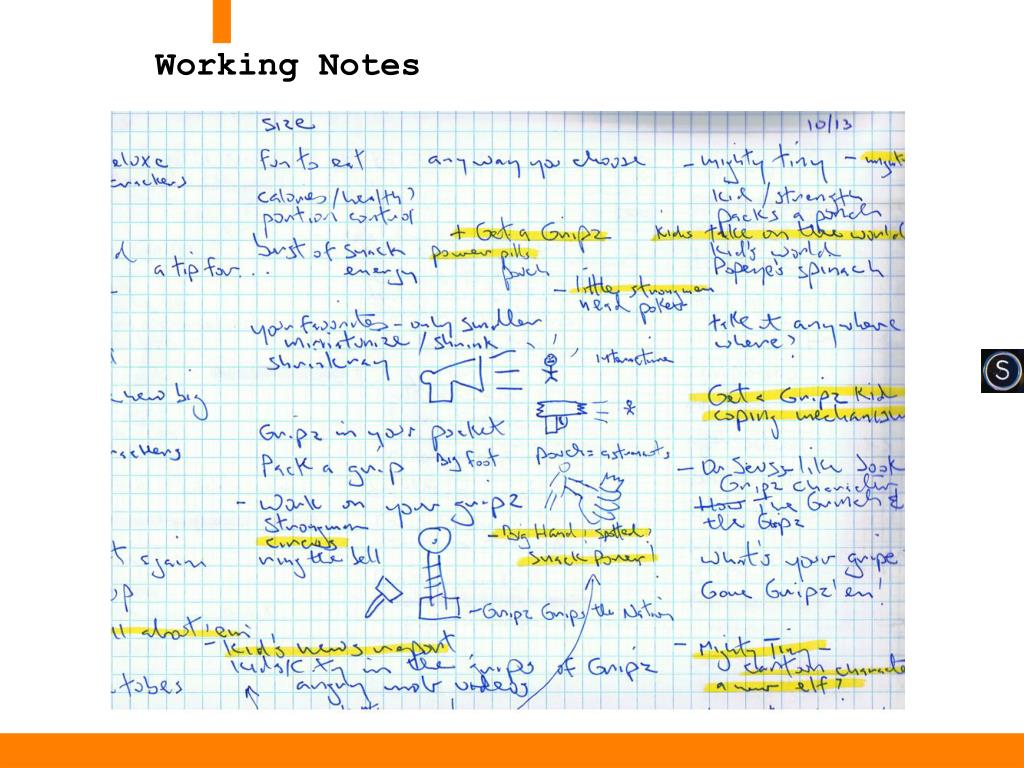 Working Notes
Size 10/13
eluxe fun to eat any way you choose - mighty tiny - might
crackers
calories/health? kid / strength
portion control packs a punch
+ Get a Gripz kids take on the world
burst of snack power pills kid's world
a tip for... energy pouch Popeye's spinach
- little strongman
head poket
your favorites - only smaller take it anywhere
miniaturize / shrink where?
shrink ray
new big Get a Gripz kid
coping mechanism
Gripz in your pocket
rackers Big foot pouch = astronauts
Pack a grip - Dr. Seuss-like book
Gripz character
- work on your gripz How The Grinch &
strongman the Gripz
circus - Big Hand! spotted?
t again ring the bell snack power! what's your gripe
op Gone Gripz'en!
- Gripz Grips the Nation
ll about 'em
- Kid's news report - Mighty Tiny -
Kids/City in the grips of Gripz cartoon characte
tobes angry mob videos a new elf?
S